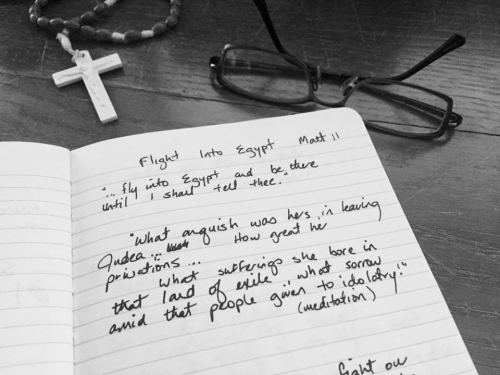 Flight Into Egypt Matt II
"... fly into Egypt and be there
until I shall tell thee."
"What anguish was hers in leaving
Judea... How great her
privations...
What sufferings she bore in
that land of exile... what sorrow
amid that people given to idolatry."
(meditation)